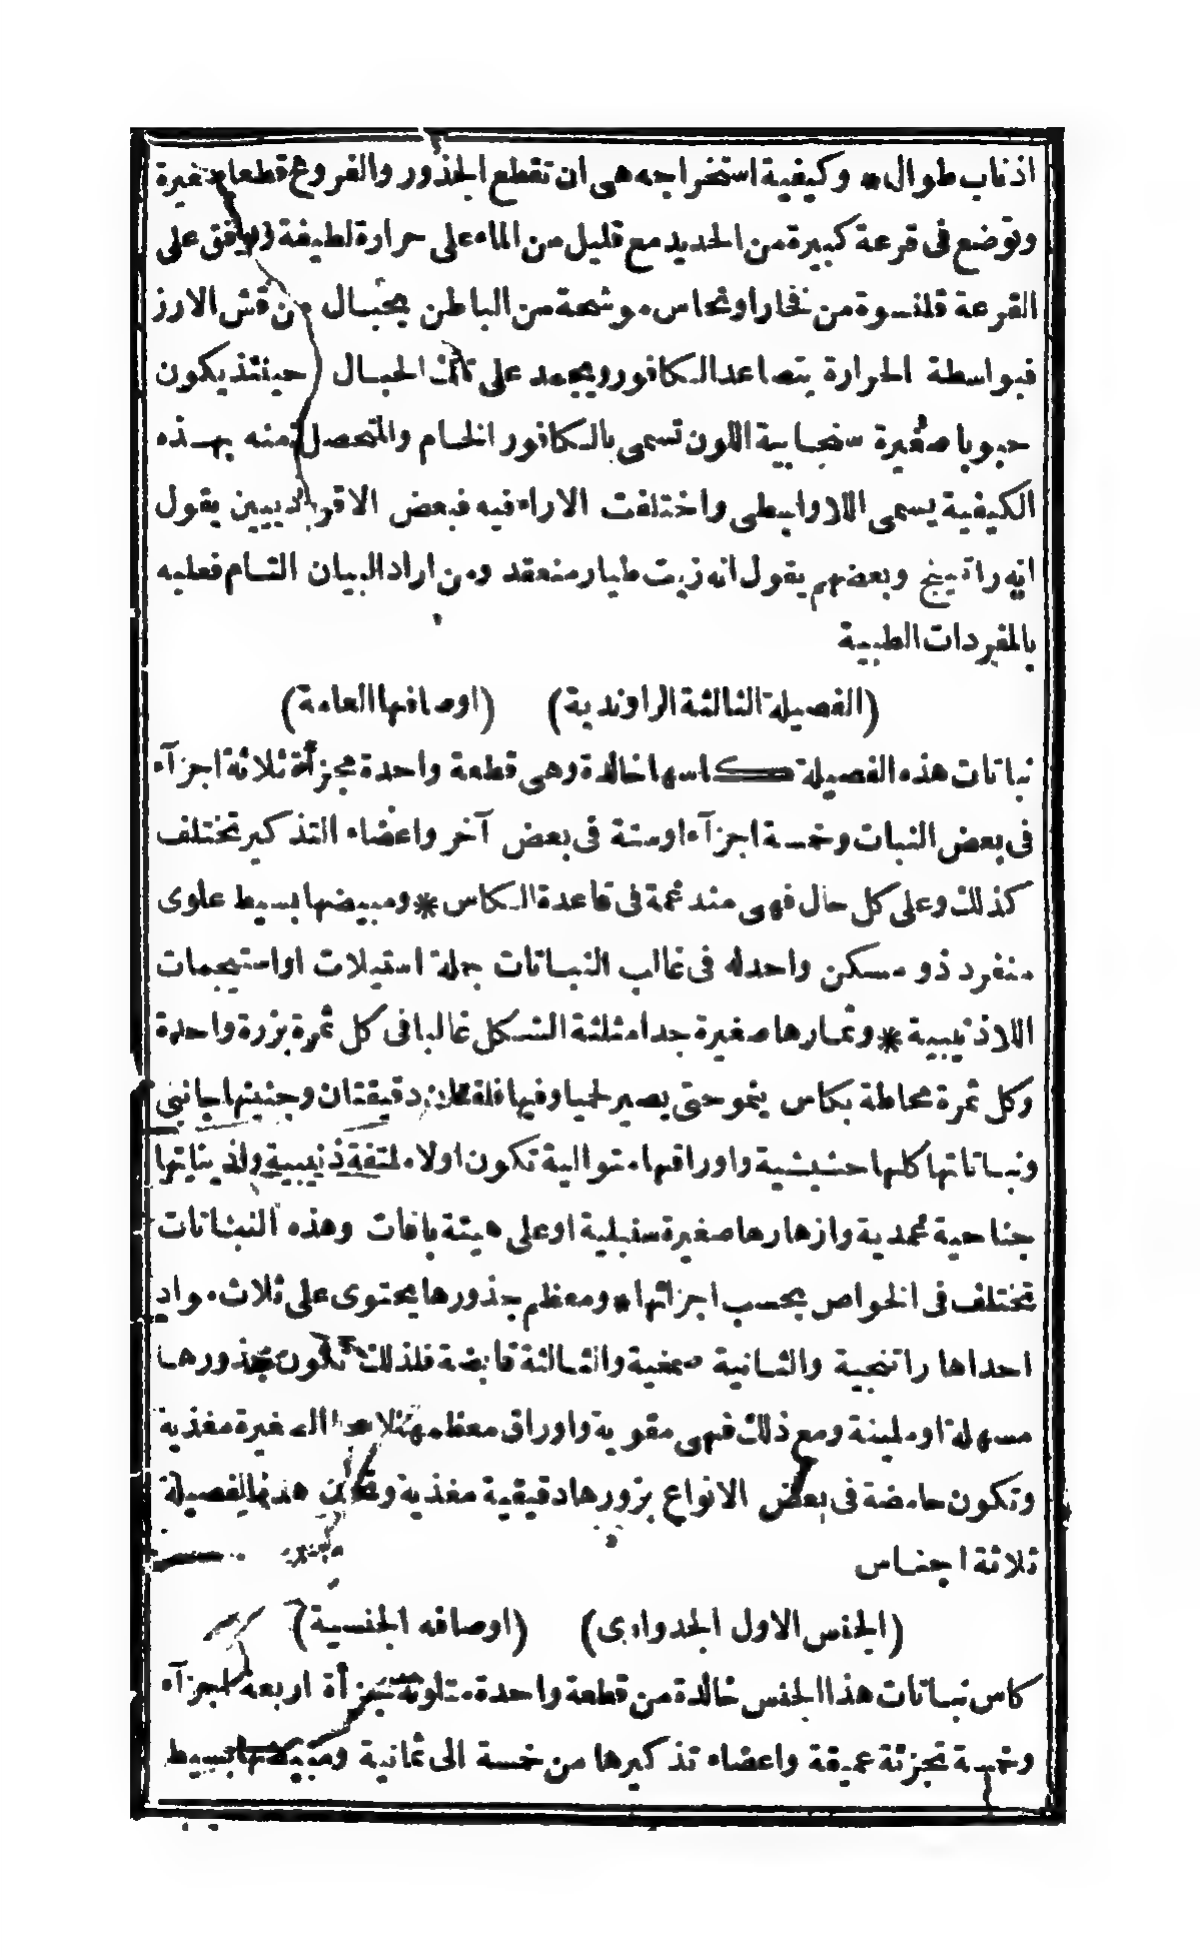 اذناب طوال * وكيفية استخراجه هى ان تقطع الجذور والفروع قطعا صغيرة
وتوضع فى قرعة كبيرة من الحديد مع قليل من الماء على حرارة لطيفة ويوافق على
القرعة قلنسوة من فخار او نحاس موشحة من الباطن بحبال من قش الارز
فبواسطة الحرارة يتصاعد الكافور ويجمد على تلك الحبال حينئذ يكون
حبوبا صغيرة سنجابية اللون تسمى بالكافور الخام والمتحصل منه بهذه
الكيفية يسمى اللاوابطى واختلفت الاراء فيه فبعض الاقرباذيين يقول
انه راتينج وبعضهم يقول انه زيت طيار منعقد ومن اراد البيان التام فعليه
بالمفردات الطبية
(الفصيلة الثالثة الراوندية) (اوصافها العامة)
نباتات هذه الفصيلة كاسها خالدة وهى قطعة واحدة مجزأة ثلاثة اجزآء
فى بعض النبات وخمسة اجزآء او ستة فى بعض آخر واعضاء التذكير تختلف
كذلك وعلى كل حال فهى مندغمة فى قاعدة الكاس * ومبيضها بسيط علوى
منفرد ذو مسكن واحد له فى غالب النباتات جملة استيلات او استيجمات
اللاذنيبية * وثمارها صغيرة جدا مثلثة الشكل غالبا فى كل ثمرة بزرة واحدة
وكل ثمرة محاطة بكاس ينمو حتى يصير لحميا وفيها فلقتان دقيقتان وجنينها جانبى
ونباتاتها كلها حشيشية واوراقها متوالية تكون اولا ملتفة ذنيبية واذيناتها
جناحية غمدية وازهارها صغيرة سنبلية او على هيئة باقات وهذه النباتات
تختلف فى الخواص بحسب اجزائها * ومعظم جذورها يحتوى على ثلاث مواد
احداها راتنجية والثانية صمغية والثالثة قابضة فلذلك تكون جذورها
مسهلة او ملينة ومع ذلك فهى مقوية واوراق معظمها الصغيرة مغذية
وتكون حامضة فى بعض الانواع بزورها دقيقية مغذية وتحت هذه الفصيلة
ثلاثة اجناس
(الجنس الاول الجدوارى) (اوصافه الجنسية)
كاس نباتات هذا الجنس خالدة من قطعة واحدة متلونة مجزأة اربعة اجزآء
وخمسة تجزئة عميقة واعضاء تذكيرها من خمسة الى ثمانية ومبيضها بسيط